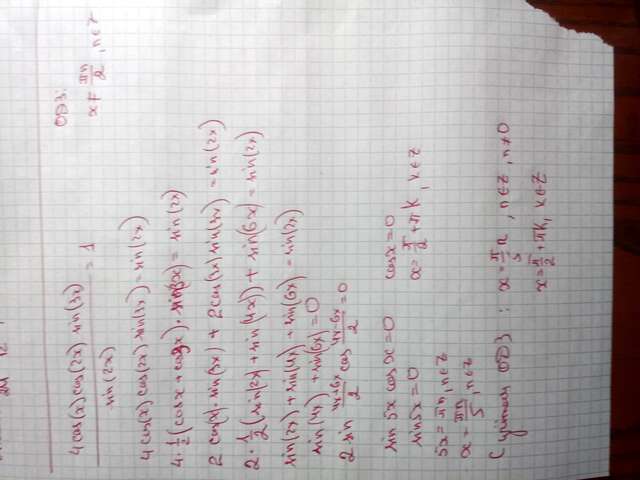 4cos(x)cos(2x) sin(3x) / sin(2x) = 1
ОДЗ:
x ≠ πn/2, n∈Z
4cos(x) cos(2x) sin(3x) = sin(2x)
4·1/2 (cosx + cos3x) · sin(3x) = sin(2x)
2 cos(x)·sin(3x) + 2cos(3x)sin(3x) = sin(2x)
2·1/2 (sin(2x) + sin(4x)) + sin(6x) = sin(2x)
sin(2x) + sin(4x) + sin(6x) = sin(2x)
sin(4x) + sin(6x) = 0
2 sin 4x+6x/2 cos 4x-6x/2 = 0
sin 5x cos x = 0
sin 5x = 0 cosx = 0
5x = πn, n∈Z x = π/2 + πk, k∈Z
x = πn/5, n∈Z
ОДЗ: x = π/5 n, n∈Z, n≠0
x = π/2 + πk, k∈Z